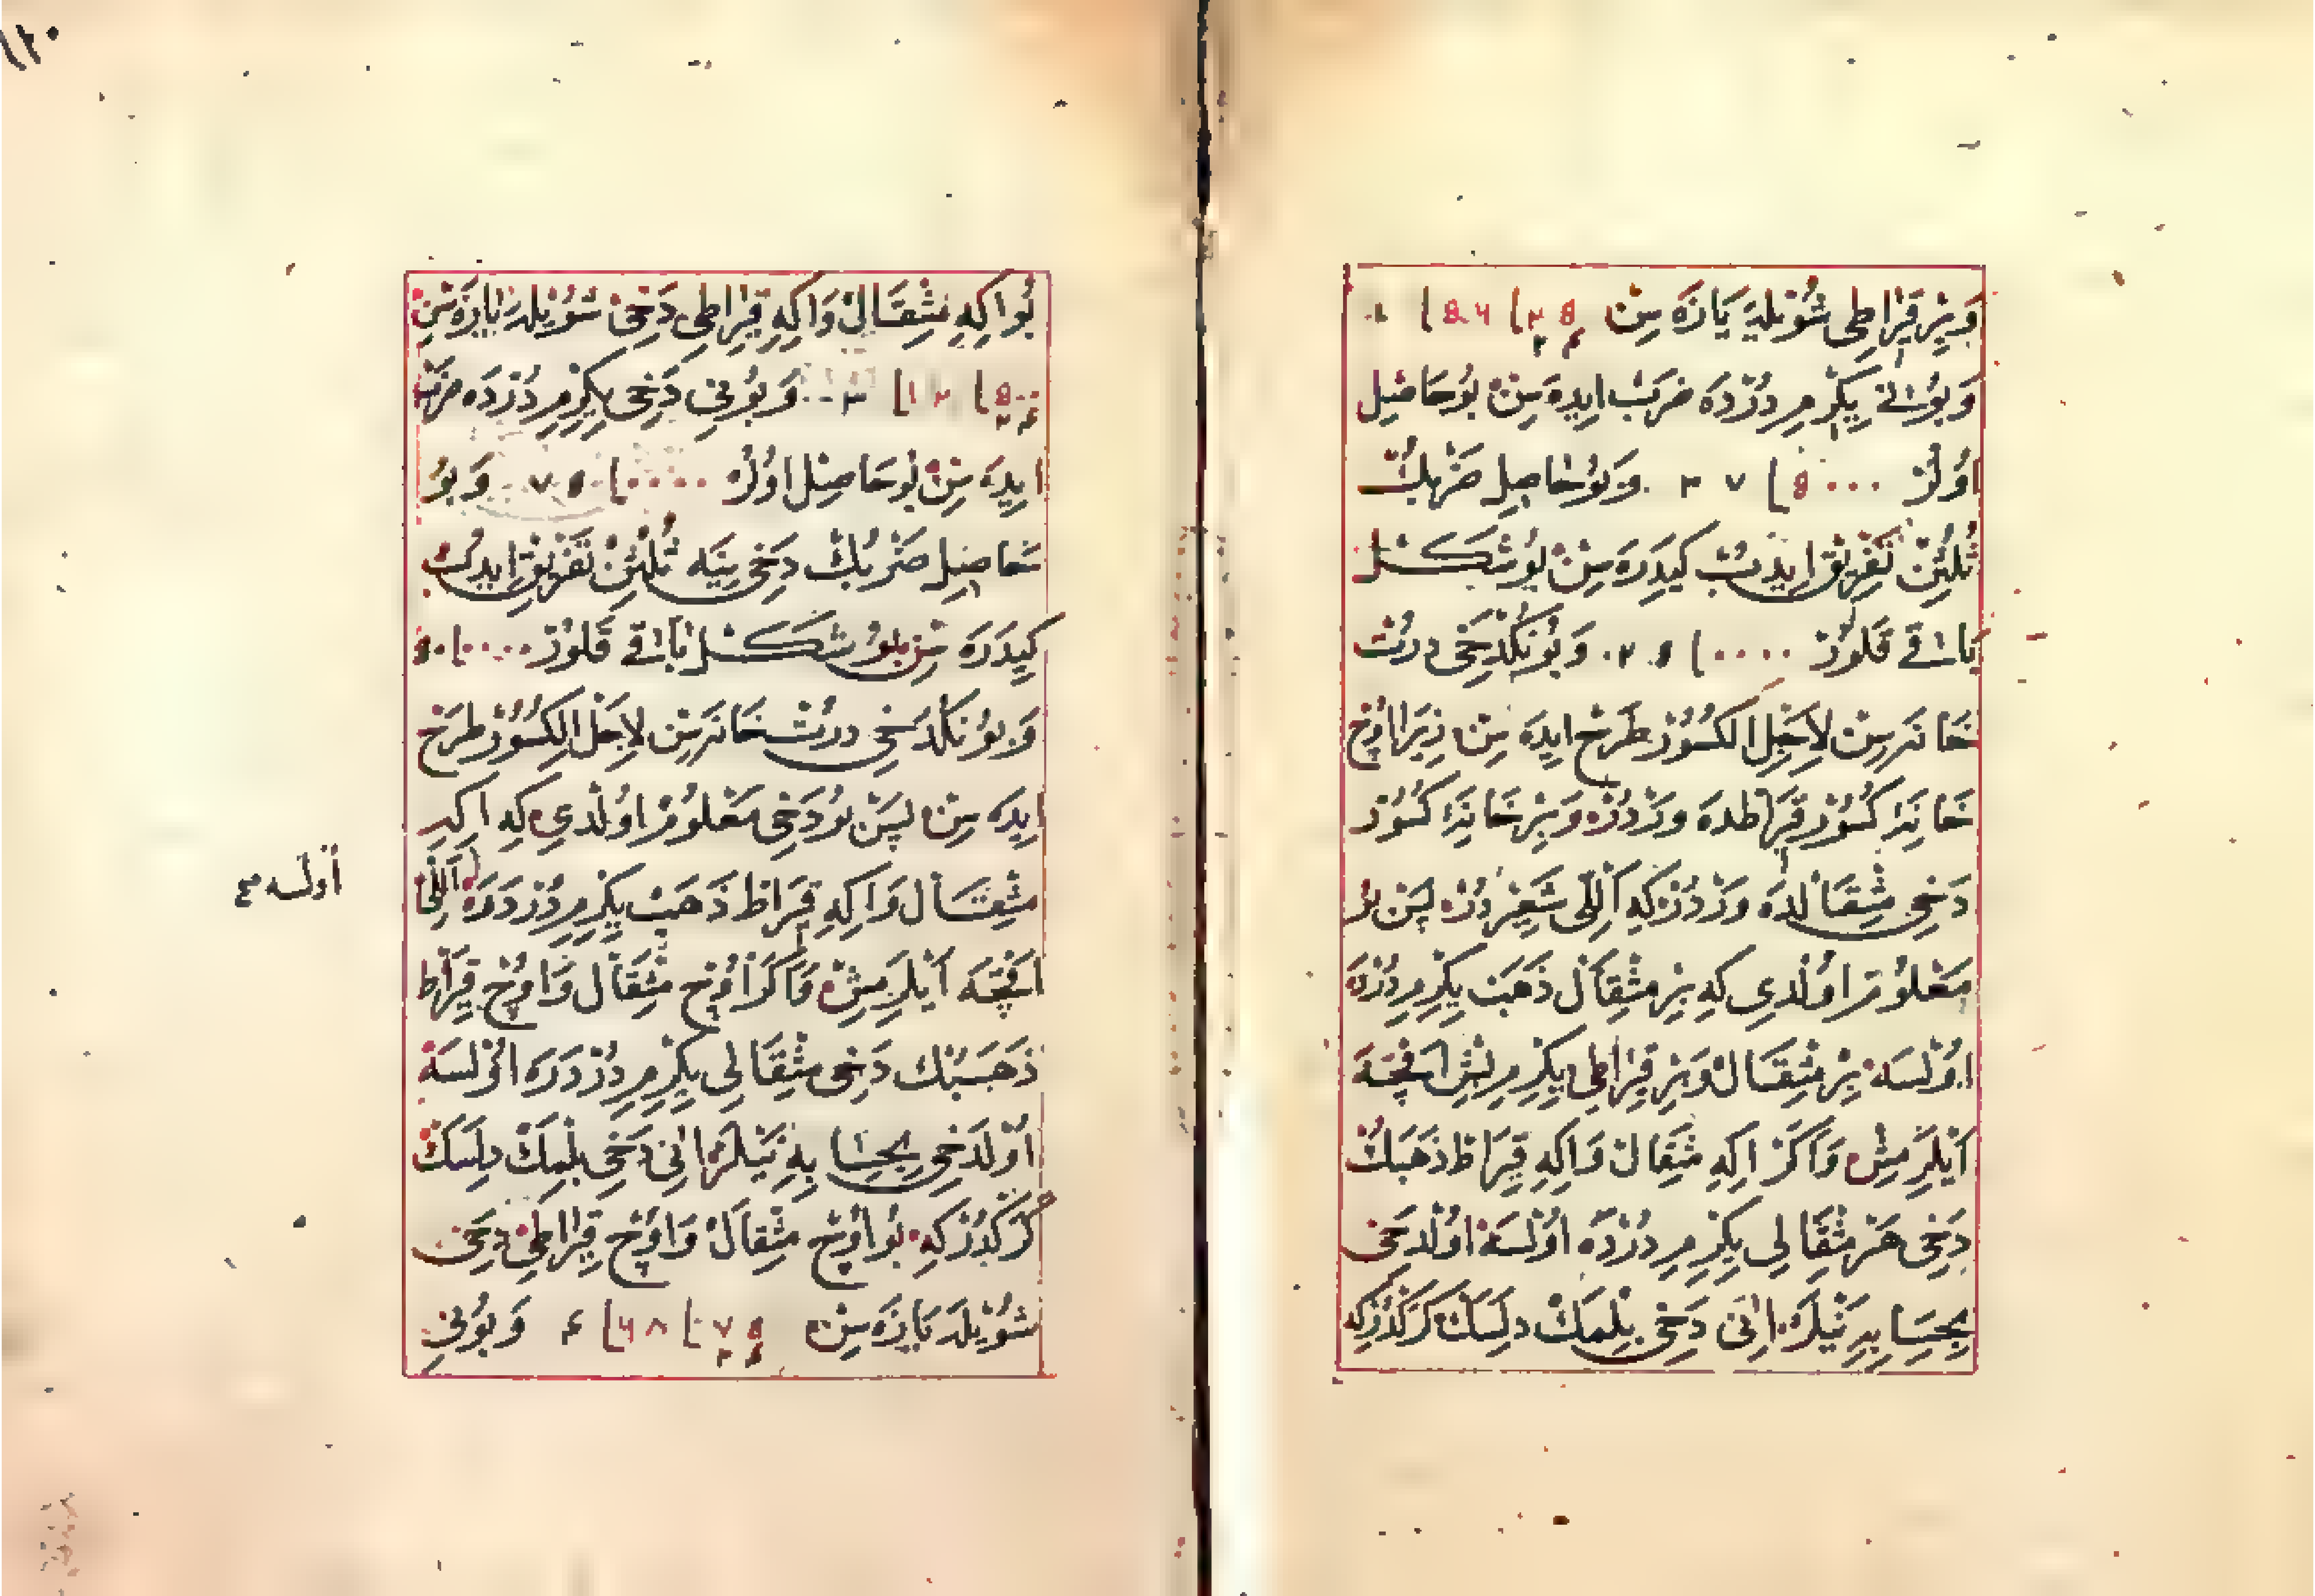 وَبِرْ قِيرَاطِى شُوْيلَهْ يَازَهْ سِنْ
وَبُونِى يِكِرْمِ دُرْدَهْ ضَرَبْ ايدَهْ سِنْ بُوحَاصِل
اوُلُرْ ٥٠٠٠] ٧ ٢ . وَبُوحَاصِلِ ضَرْبِكْ
ثُلْثِنْ تَفْرِيقْ ايدِبْ كيدَرَهْ سِنْ بُو شَكِلْ
بَاقِى قَلُورْ ٠٠٠٠] وَبُونُكْدَخِى دُرْتْ
خَانَهْسِنْ لِاَجْلِ الْكُسُورْ طَرَحْ ايدَهْ سِنْ زِيرَا اوُچْ
خَانَهْ كُسُورْ قِيرَاطدَهْ وَرْدُرْ وَبِرْ خَانَهْ كُسُورْ
دَخِى مِثْقَالدَهْ وَرْدُرْ كِهْ اَللِّى شَعِيرْدُرْ پَسْ بُو
مَعْلُومْ اوُلْدِى كِهْ بِرْ مِثْقَالْ ذَهَبْ يِكِرْمِ دُرْدَهْ
اوُلْسَهْ بِرْ مِثْقَالْ وَبِرْ قِيرَاطِى يِكِرْمِ بِشْ اَقْچَهْ
اَيْلَرْمِشْ وَاَكَرْ اِكِهْ مِثْقَالْ وَاِكِهْ قِيرَاطْ ذَهَبُكْ
دَخِى هَرْ مِثْقَالِى يِكِرْمِ دُرْدَهْ اوُلْسَهْ اوُلْدَخِى
بِحِسَابِهْ نَيْلَرْ اَنِى دَخِى بِلْمَكْ دِلَسَكْ كَرَكْدُرْكِهْ
بُو اِكِهْ مِثْقَالِى وَاِكِهْ قِيرَاطِى دَخِى شُوْيلَهْ يَازَهْ سِنْ
وَبُونِى دَخِى يِكِرْمِ دُرْدَهْ ضَرَبْ
ايدَهْ سِنْ بُوحَاصِلْ اوُلُرْ وَبُو
حَاصِلِ ضَرْبِكْ دَخِى يِنَهْ ثُلْثِنْ تَفْرِيقْ ايدِبْ
كِيدَرَهْ سِنْ بُو شَكِلْ بَاقِى قَلُورْ
وَبُونُكْدَخِى دُرْتْ خَانَهْسِنْ لِاَجْلِ الْكُسُورْ طَرَحْ
ايدَهْ سِنْ پَسْ بُودَخِى مَعْلُومْ اوُلْدِى كِهْ اِكِهْ
مِثْقَالْ وَاِكِهْ قِيرَاطْ ذَهَبْ يِكِرْمِ دُرْدَهْ اَللِّى
اَقْچَهْ اَيْلَرْمِشْ وَاَكَرْ اوُچْ مِثْقَالْ وَاوُچْ قِيرَاطْ
ذَهَبُكْ دَخِى مِثْقَالِى يِكِرْمِ دُرْدَهْ اوُلْسَهْ
اوُلْدَخِى بِحِسَابِهْ نَيْلَرْ اَنِى دَخِى بِلْمَكْ دِلَسَكْ
كَرَكْدُرْكِهْ بُو اوُچْ مِثْقَالْ وَاوُچْ قِيرَاطِى دَخِى
شُوْيلَهْ يَازَهْ سِنْ وَبُونِى
اولسه
١٢٠